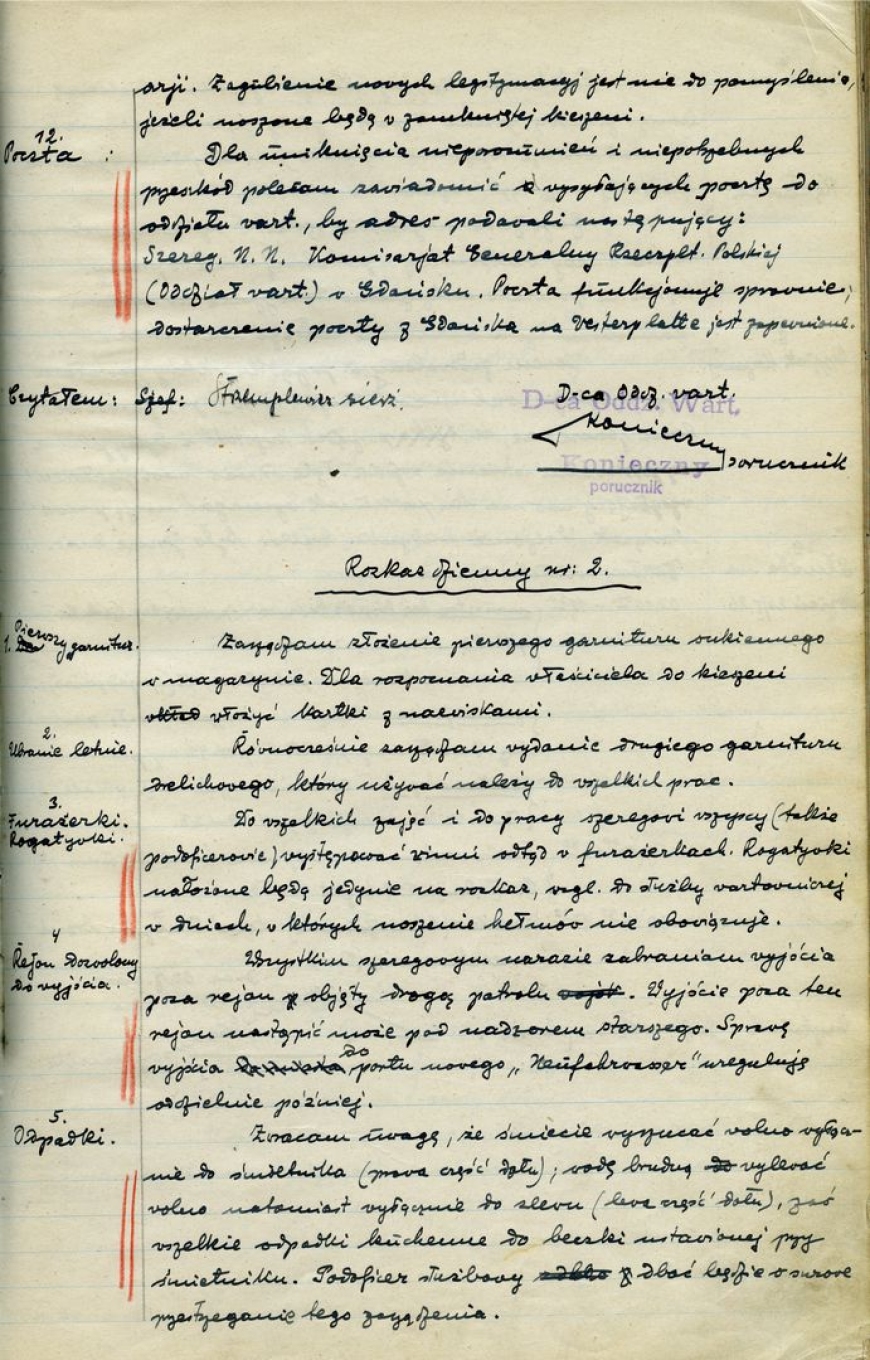 arji. Zagubienie nowych legitymacyj jest nie do pomyślenia,
jeżeli noszone będą w zamkniętej kieszeni.
12.
Poczta :
Dla uniknięcia nieporozumień i niepotrzebnych
przeszkód polecam zawiadomić wysyłających pocztę do
oddziału wart., by adres podawali następujący:
Szereg. N. N. Komisarjat Generalny Rzeczplt. Polskiej
(Oddział wart.) w Gdańsku. Poczta funkcjonuje sprawnie;
dostarczenie poczty z Gdańska na Westerplatte jest zapewnione.
Czytałem: Szef: sierż.
D-ca Odz. wart.
D-ca Oddz. Wart.
Konieczny
Konieczny porucznik
porucznik
Rozkaz dzienny nr: 2.
1. Pierwszy garnitur.
Zarządzam złożenie pierwszego garnituru sukiennego
w magazynie. Dla rozpoznania właściciela do kieszeni
wkład włożyć kartki z nazwiskami.
2.
Ubranie letnie.
Równocześnie zarządzam wydanie drugiego garnituru
drelichowego, który używać należy do wszelkich prac.
3.
Furażerki.
Rogatywki.
Do wszelkich zajęć i do pracy szeregowi wszyscy (także
podoficerowie) występować winni odtąd w furażerkach. Rogatywki
nałożone będą jedynie na rozkaz, wzgl. do służby wartowniczej
w dniach, w których noszenie hełmów nie obowiązuje.
4
Rejon dozwolony
do wyjścia.
Wszystkim szeregowym narazie zabraniam wyjścia
poza rejon objęty drogą patrolu. Wyjście poza ten
rejon nastąpić może pod nadzorem starszego. Sprawę
wyjścia do miasta do portu nowego „Neufahrwasser" ureguluję
oddzielnie później.
5.
Odpadki.
Zwracam uwagę, że śmiecie wyrzucać wolno wyłącz-
nie do śmietnika (prawa część dołu); wodę brudną do wylewać
wolno natomiast wyłącznie do zlewu (lewa część dołu), zaś
wszelkie odpadki kuchenne do beczki ustawionej przy
śmietniku. Podoficer służbowy dbać będzie o surowe
przestrzeganie tego zarządzenia.